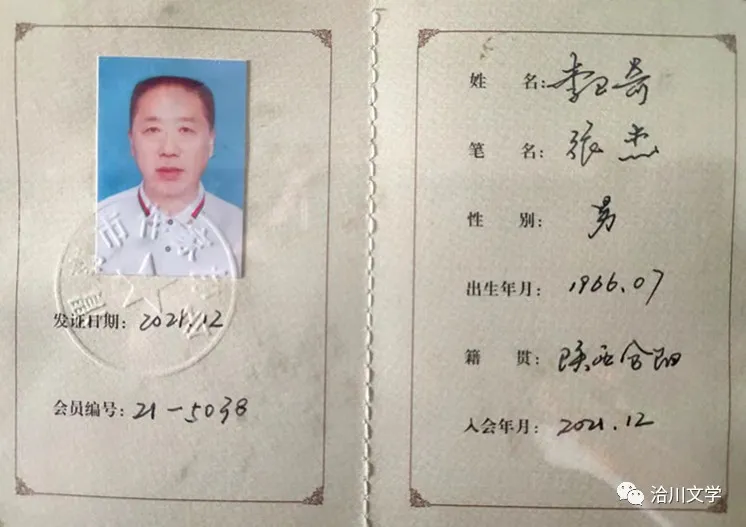 发证日期: 2021.12
会员编号: 21-5038
姓 名: 李卫奇
笔 名: 张杰
性 别: 男
出生年月: 1966.07
籍 贯: 陕西合阳
入会年月: 2021.12
洽川文学